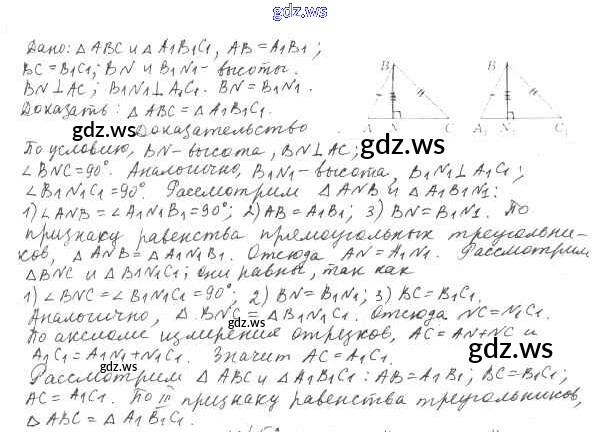 gdz.ws
Дано: △ABC и △A1B1C1, AB = A1B1;
BC = B1C1; BN и B1N1 - высоты.
BN ⊥ AC; B1N1 ⊥ A1C1. BN = B1N1.
Доказать: △ABC = △A1B1C1.
B B1
A N C A1 N1 C1
gdz.ws Доказательство
По условию, BN - высота, BN ⊥ AC; gdz.ws
∠BNC = 90°. Аналогично, B1N1 - высота, B1N1 ⊥ A1C1;
∠B1N1C1 = 90°. Рассмотрим △ANB и △A1B1N1:
1) ∠ANB = ∠A1N1B1 = 90°; 2) AB = A1B1; 3) BN = B1N1. По
gdz.ws gdz.ws
признаку равенства прямоугольных треугольни-
ков, △ANB = △A1N1B1. Отсюда AN = A1N1. Рассмотрим
△BNC и △B1N1C1; они равны, так как
1) ∠BNC = ∠B1N1C1 = 90°; 2) BN = B1N1; 3) BC = B1C1.
Аналогично, △BNC = △B1N1C1. Отсюда NC = N1C1.
gdz.ws
По аксиоме измерения отрезков, AC = AN + NC и
A1C1 = A1N1 + N1C1. Значит AC = A1C1. gdz.ws
Рассмотрим △ABC и △A1B1C1: AB = A1B1; BC = B1C1;
AC = A1C1. По III признаку равенства треугольников,
△ABC = △A1B1C1. gdz.ws